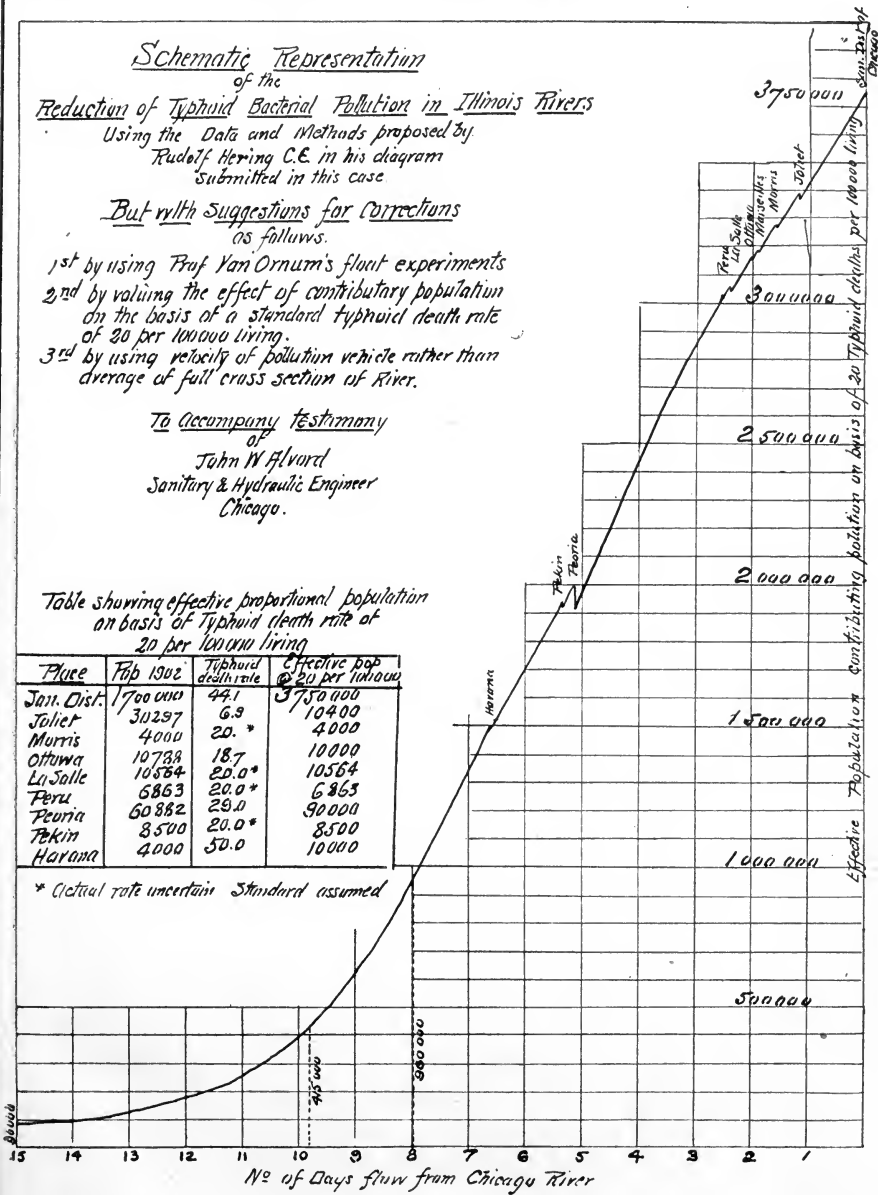 Schematic Representation
of the
Reduction of Typhoid Bacterial Pollution in Illinois Rivers
Using the Data and Methods proposed by
Rudolf Hering C.E. in his diagram
submitted in this case
But with Suggestions for Corrections
as follows.
1st by using Prof Van Ornum's float experiments
2nd by valuing the effect of contributary population
on the basis of a standard typhoid death rate
of 20 per 100000 living.
3rd by using velocity of pollution vehicle rather than
average of full cross section of River.
To Accompany testimony
of
John W Alvord
Sanitary & Hydraulic Engineer
Chicago.
Table showing effective proportional population
on basis of Typhoid death rate of
20 per 100000 living
Place Pop 1902 Typhoid death rate Effective pop @ 20 per 100000
San. Dist. 1700000 44.1 3750000
Joliet 30297 6.9 10400
Morris 4000 20. * 4000
Ottawa 10788 18.7 10000
La Salle 10564 20.0* 10564
Peru 6863 20.0* 6863
Peoria 60882 29.0 90000
Pekin 8500 20.0* 8500
Havana 4000 50.0 10000
* Actual rate uncertain Standard assumed
San. Dist of
Chicago
3750000
Joliet
Morris
Marseilles
Ottawa
La Salle
Peru
3000000
2500000
Peoria
Pekin
2000000
Havana
1500000
1000000
500000
Effective Population contributing polution on basis of 20 Typhoid deaths per 100000 living
960000
415000
15 14 13 12 11 10 9 8 7 6 5 4 3 2 1
No of Days flow from Chicago River